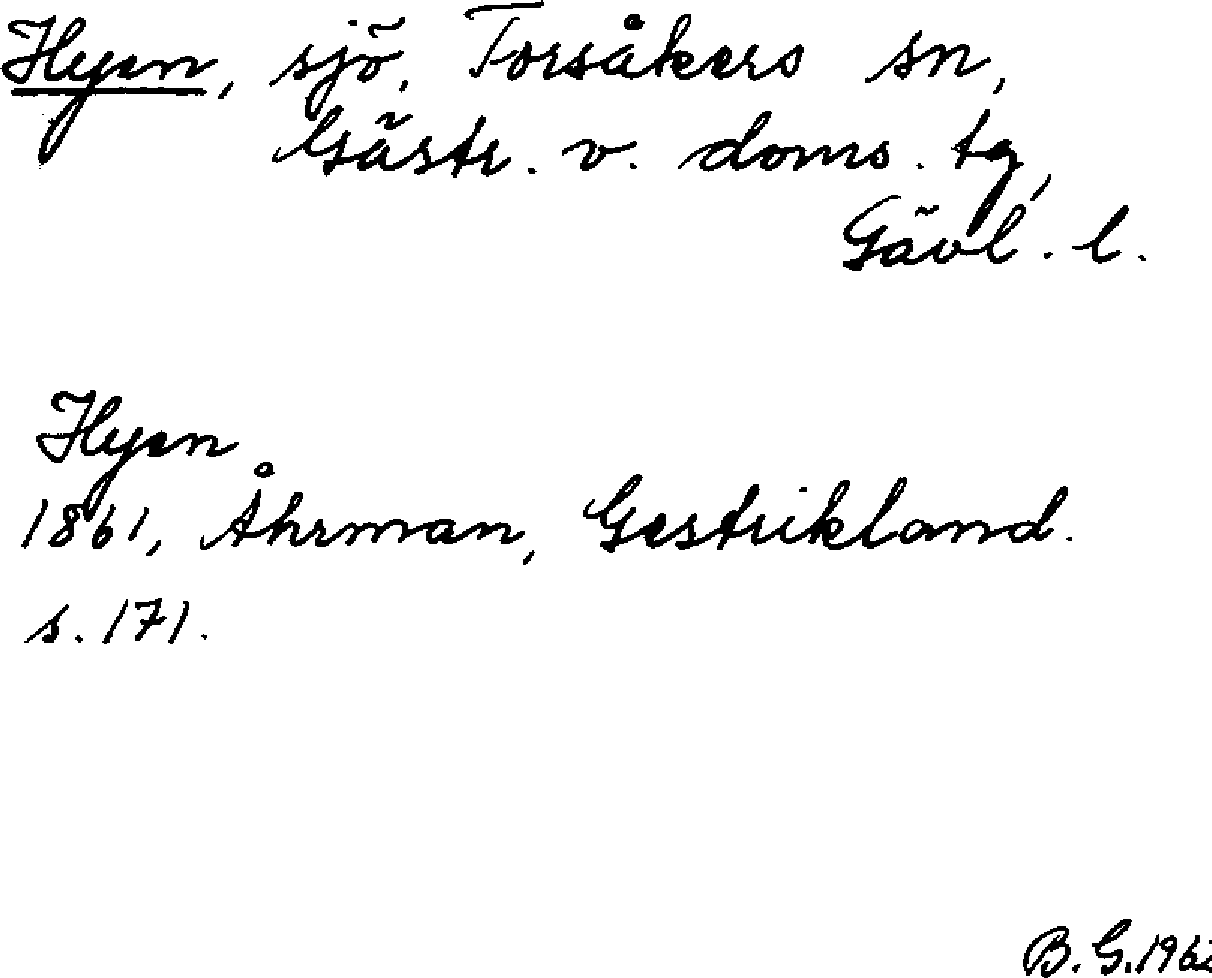 Hyen, sjö, Torsåkers sn,
Gästr. v. doms. tg,
Gävl. l.
Hyen
1861, Åhrman, Gestrikland.
s. 171.
B. G.